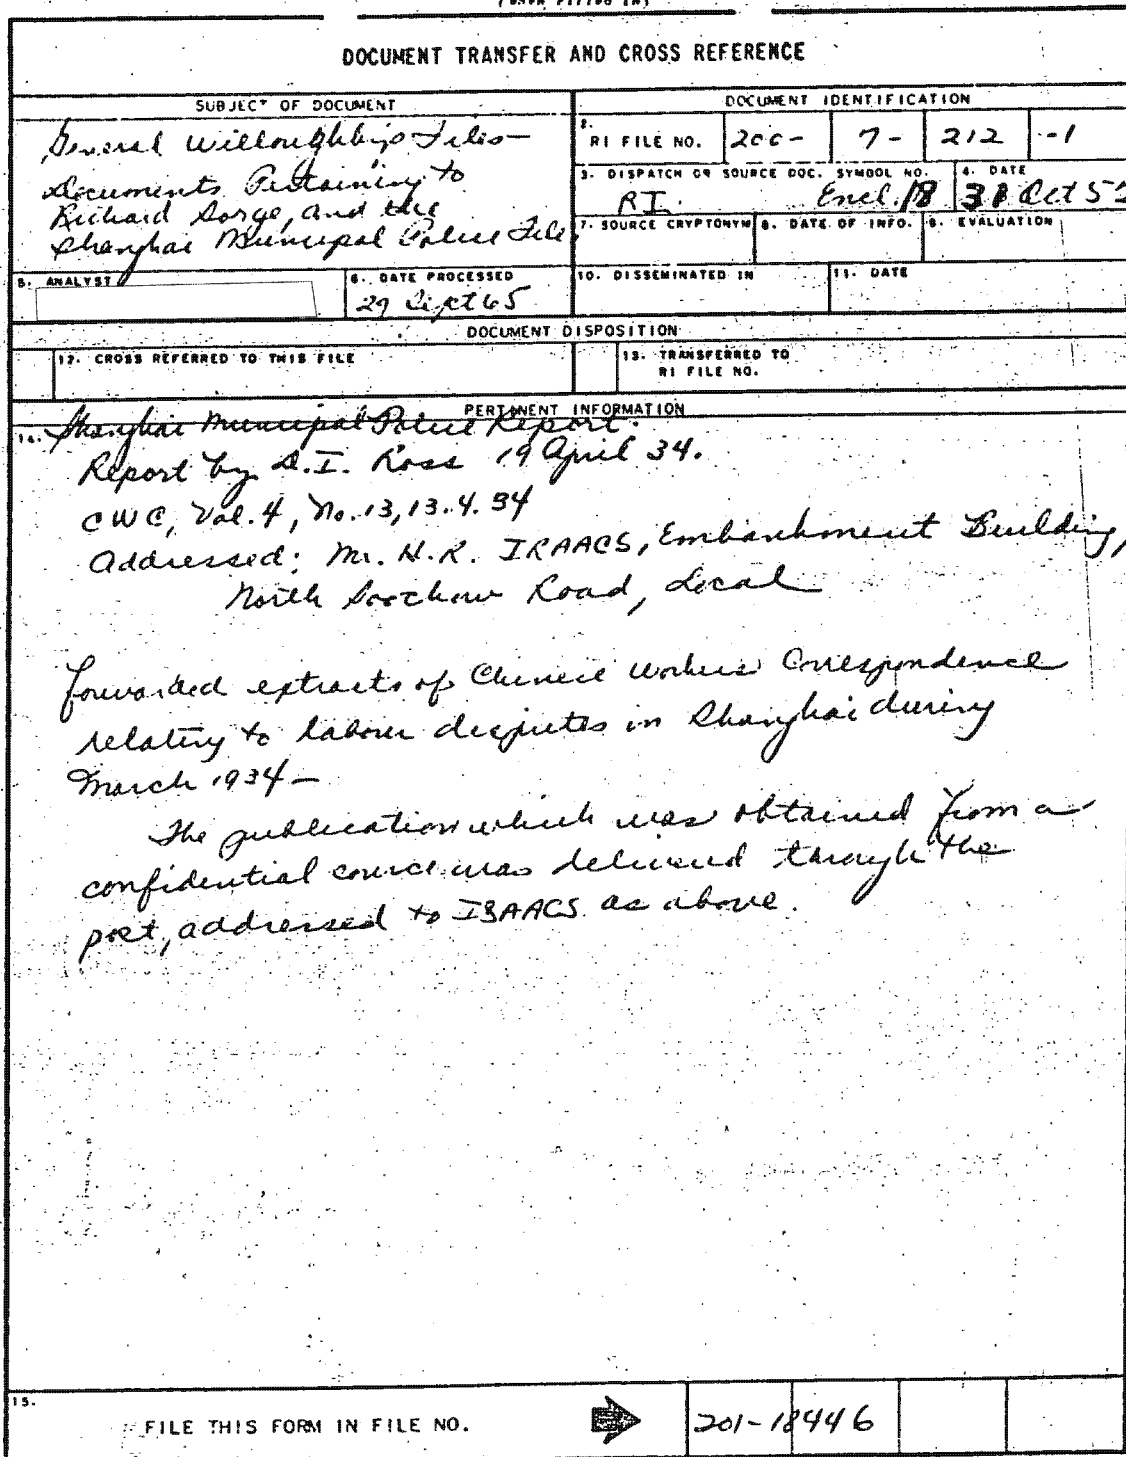 (WHEN FILLED IN)
DOCUMENT TRANSFER AND CROSS REFERENCE
SUBJECT OF DOCUMENT
General Willoughby's Files-
Documents Pertaining to
Richard Sorge, and the
Shanghai Municipal Police File
DOCUMENT IDENTIFICATION
2. RI FILE NO. 200- 7- 212 -1
3. DISPATCH OR SOURCE DOC. SYMBOL NO.
RI. Encl. 18
4. DATE
31 Oct 5
7. SOURCE CRYPTONYM
8. DATE OF INFO.
9. EVALUATION
5. ANALYST
6. DATE PROCESSED
29 Sept 65
10. DISSEMINATED IN
11. DATE
DOCUMENT DISPOSITION
12. CROSS REFERRED TO THIS FILE
13. TRANSFERRED TO
RI FILE NO.
PERTINENT INFORMATION
14. Shanghai Municipal Police Report.
Report by D.I. Ross 19 April 34.
CWC, Vol. 4, No. 13, 13.4.34
Addressed; Mr. H.R. ISAACS, Embankment Building,
North Soochow Road, Local
forwarded extracts of Chinese Workers Correspondence
relating to labour disputes in Shanghai during
March 1934 -
The publication which was obtained from a
confidential source was delivered through the
post, addressed to ISAACS as above.
15.
FILE THIS FORM IN FILE NO.
201-18446